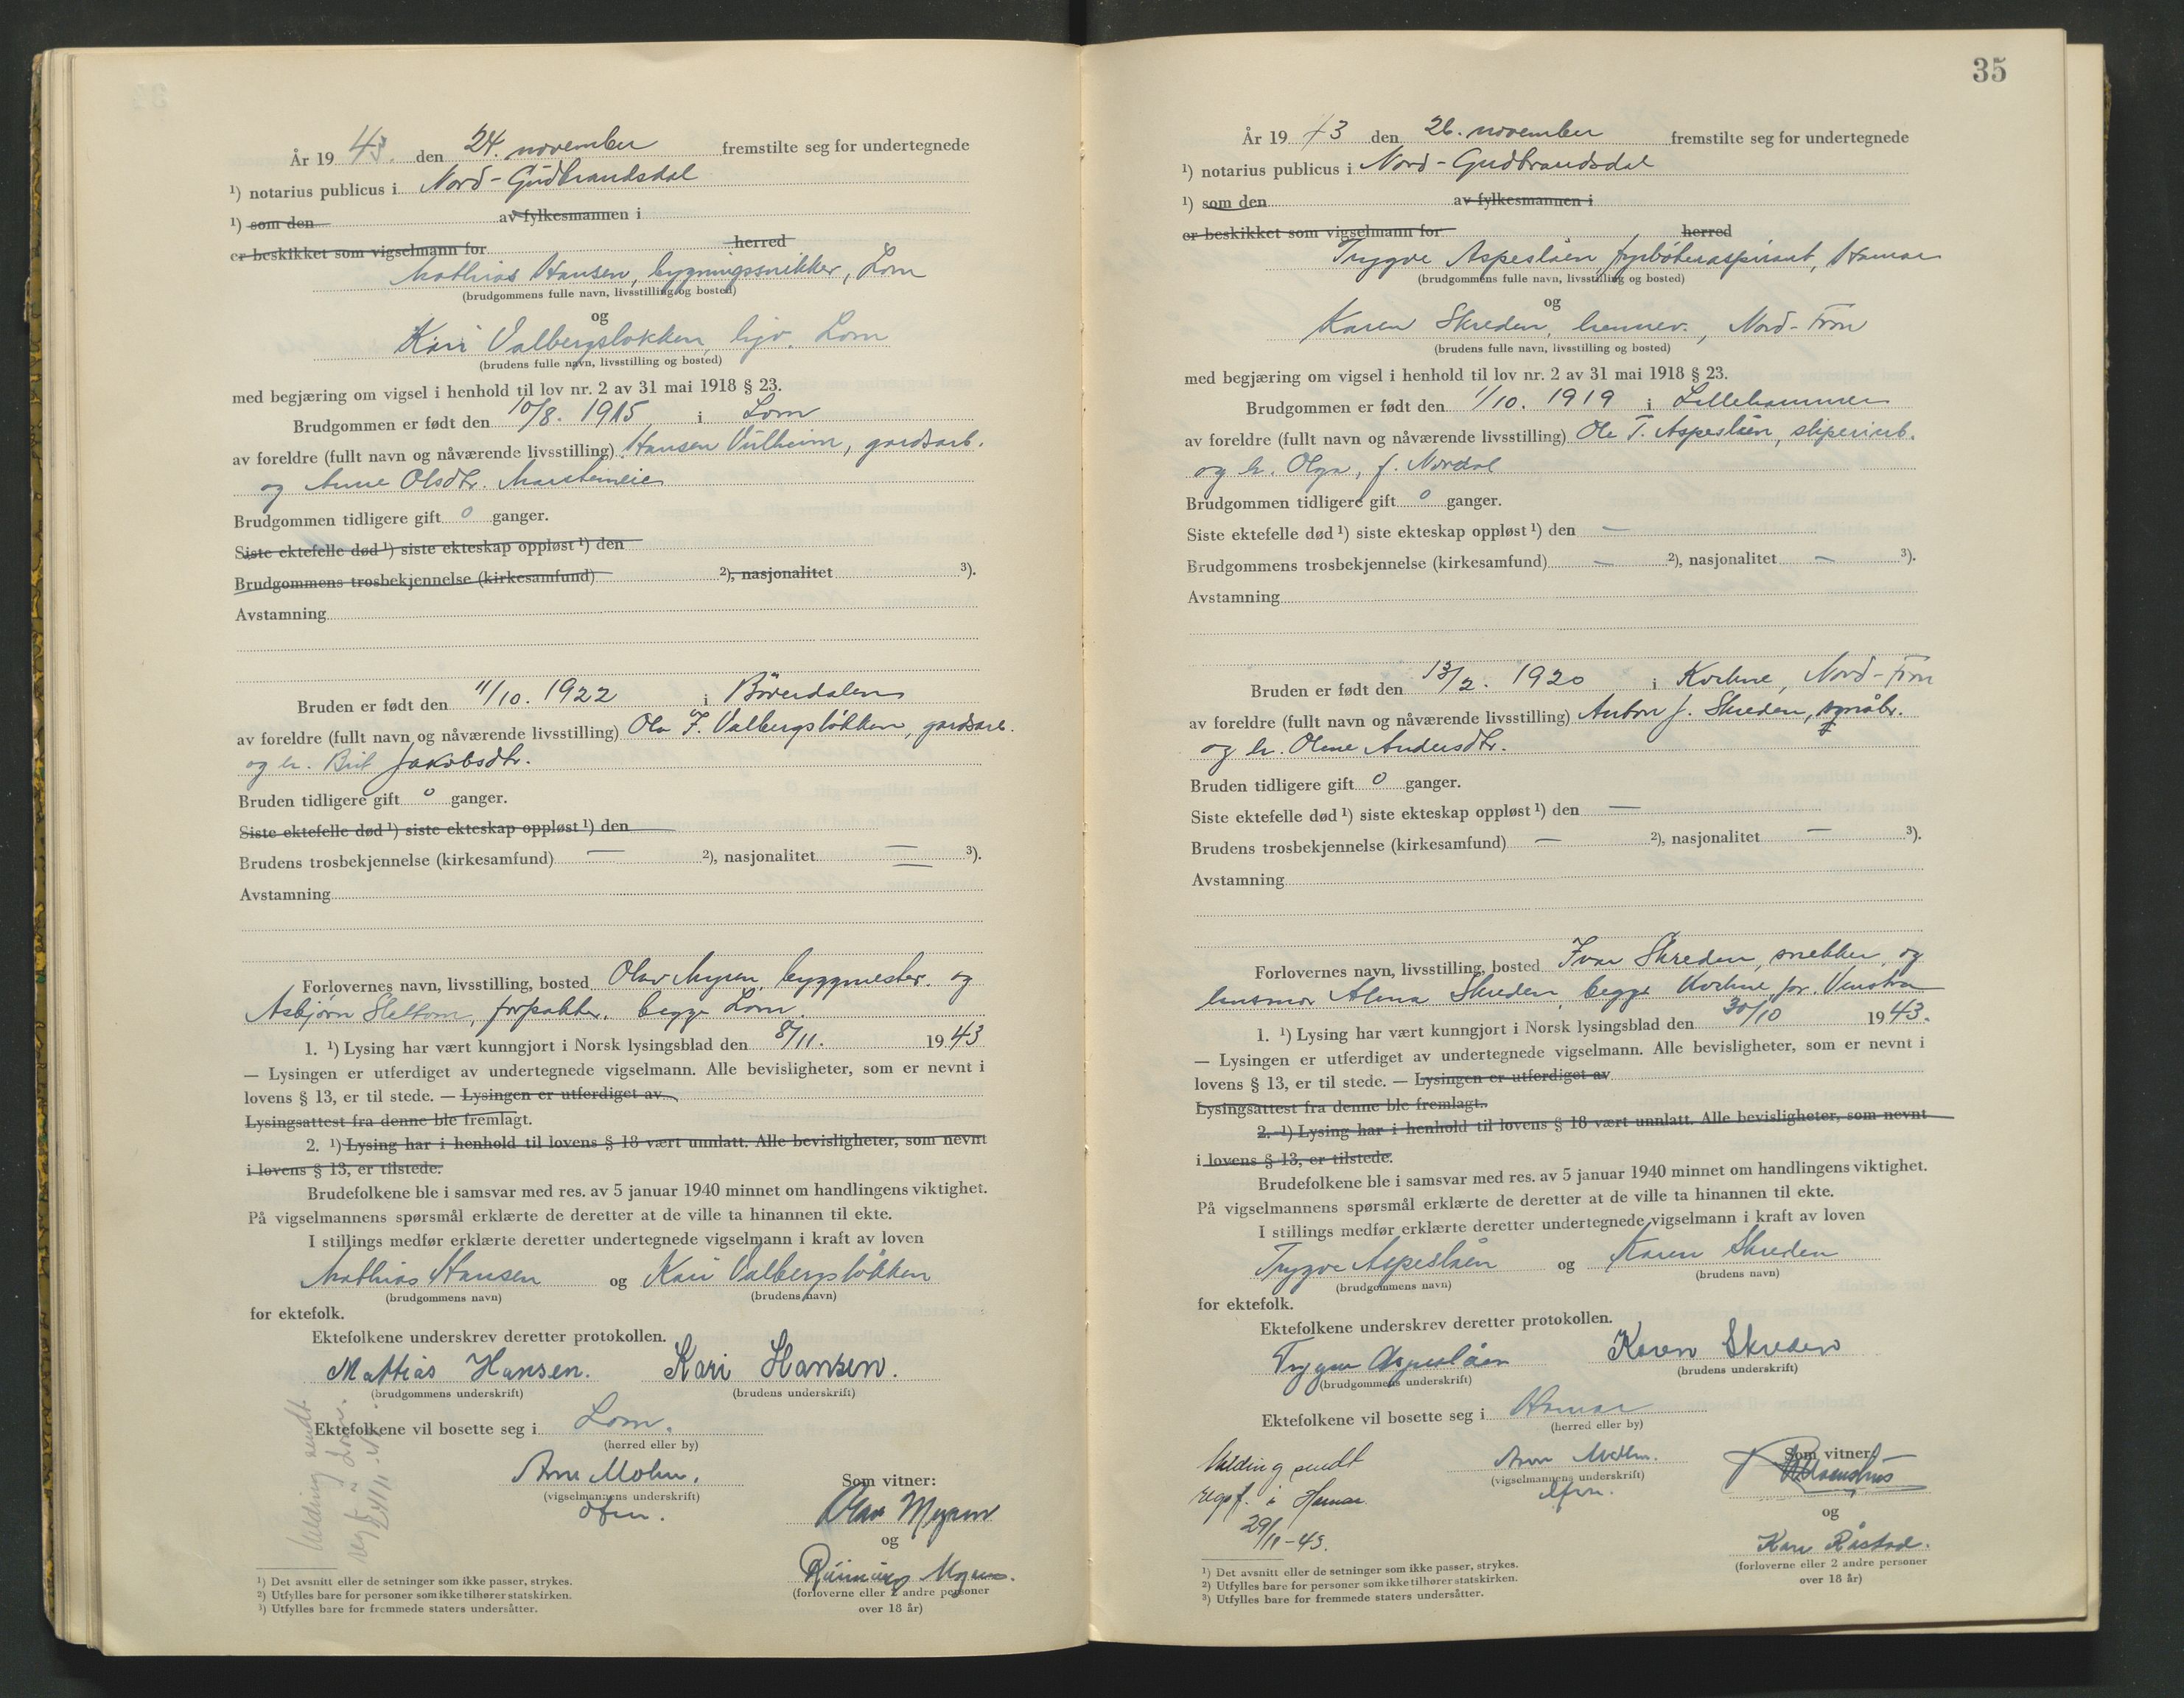 År 19 43. den 24. november fremstilte seg for undertegnede
¹) notarius publicus i Nord-Gudbrandsdal
¹) som den av fylkesmannen i
er beskikket som vigselmann for herred
Mathias Hansen, bygningssnikker, Lom
(brudgommens fulle navn, livsstilling og bosted)
og
Kari Valbergsløkken, hjv. Lom
(brudens fulle navn, livsstilling og bosted)
med begjæring om vigsel i henhold til lov nr. 2 av 31 mai 1918 § 23.
Brudgommen er født den 10/8. 1915 i Lom
av foreldre (fullt navn og nåværende livsstilling) Hansen Vulheim, gardsarb.
og Anne Olsdtr.
Brudgommen tidligere gift 0 ganger.
Siste ektefelle død ¹) siste ekteskap oppløst ¹) den
Brudgommens trosbekjennelse (kirkesamfund) ²), nasjonalitet ³).
Avstamning
Bruden er født den 11/10. 1922 i Böverdalen
av foreldre (fullt navn og nåværende livsstilling) Ola F. Valbergsløkken, gardsarb.
og h. Brit Jakobsdtr.
Bruden tidligere gift 0 ganger.
Siste ektefelle død ¹) siste ekteskap oppløst ¹) den
Brudens trosbekjennelse (kirkesamfund) — ²), nasjonalitet — ³).
Avstamning
Forlovernes navn, livsstilling, bosted Olav Myren, byggmester og
Asbjørn Slettom, forpakter, begge Lom.
1. ¹) Lysing har vært kunngjort i Norsk lysingsblad den 8/11. 1943
— Lysingen er utferdiget av undertegnede vigselmann. Alle bevisligheter, som er nevnt i
lovens § 13, er til stede. — Lysingen er utferdiget av
Lysingsattest fra denne ble fremlagt.
2. ¹) Lysing har i henhold til lovens § 18 vært unnlatt. Alle bevisligheter, som nevnt
i lovens § 13, er tilstede.
Brudefolkene ble i samsvar med res. av 5 januar 1940 minnet om handlingens viktighet.
På vigselmannens spørsmål erklærte de deretter at de ville ta hinannen til ekte.
I stillings medfør erklærte deretter undertegnede vigselmann i kraft av loven
Mathias Hansen og Kari Valbergsløkken
(brudgommens navn) (brudens navn)
for ektefolk.
Ektefolkene underskrev deretter protokollen.
Mattias Hansen. Kari Hansen.
(brudgommens underskrift) (brudens underskrift)
Ektefolkene vil bosette seg i Lom.
(herred eller by)
Melding sendt
regf. i Lom.
24/11
Arne Mohn.
(vigselmannens underskrift)
dfm.
Som vitner:
Olav Myren
og
Myren.
(forloverne eller 2 andre personer
over 18 år)
¹) Det avsnitt eller de setninger som ikke passer, strykes.
²) Utfylles bare for personer som ikke tilhører statskirken.
³) Utfylles bare for fremmede staters undersåtter.
35
År 19 43 den 26. november fremstilte seg for undertegnede
¹) notarius publicus i Nord-Gudbrandsdal
¹) som den av fylkesmannen i
er beskikket som vigselmann for herred
Trygve Aspeslåen, fyrbøteraspirant, Hamar
(brudgommens fulle navn, livsstilling og bosted)
og
Karen Skreden, hennev., Nord-Fron
(brudens fulle navn, livsstilling og bosted)
med begjæring om vigsel i henhold til lov nr. 2 av 31 mai 1918 § 23.
Brudgommen er født den 1/10. 1919 i Lillehammer
av foreldre (fullt navn og nåværende livsstilling) Ole T. Aspeslåen, sliperiarb.
og h. Olga, f. Nordal
Brudgommen tidligere gift 0 ganger.
Siste ektefelle død ¹) siste ekteskap oppløst ¹) den —
Brudgommens trosbekjennelse (kirkesamfund) — ²), nasjonalitet — ³).
Avstamning
Bruden er født den 13/2. 1920 i Kvikne, Nord-Fron
av foreldre (fullt navn og nåværende livsstilling) Anton J. Skreden, småbr.
og h. Oline Andersdtr.
Bruden tidligere gift 0 ganger.
Siste ektefelle død ¹) siste ekteskap oppløst ¹) den —
Brudens trosbekjennelse (kirkesamfund) — ²), nasjonalitet — ³).
Avstamning
Forlovernes navn, livsstilling, bosted Ivar Skreden, snekker, og
husmor Alma Skreden, begge Kvikne pr. Vinstra
1. ¹) Lysing har vært kunngjort i Norsk lysingsblad den 30/10 1943.
— Lysingen er utferdiget av undertegnede vigselmann. Alle bevisligheter, som er nevnt i
lovens § 13, er til stede. — Lysingen er utferdiget av
Lysingsattest fra denne ble fremlagt.
2. ¹) Lysing har i henhold til lovens § 18 vært unnlatt. Alle bevisligheter, som nevnt
i lovens § 13, er tilstede.
Brudefolkene ble i samsvar med res. av 5 januar 1940 minnet om handlingens viktighet.
På vigselmannens spørsmål erklærte de deretter at de ville ta hinannen til ekte.
I stillings medfør erklærte deretter undertegnede vigselmann i kraft av loven
Trygve Aspeslåen og Karen Skreden
(brudgommens navn) (brudens navn)
for ektefolk.
Ektefolkene underskrev deretter protokollen.
Trygve Aspeslåen Karen Skreden
(brudgommens underskrift) (brudens underskrift)
Ektefolkene vil bosette seg i Hamar
(herred eller by)
Melding sendt
regf. i Hamar.
29/11-43.
Arne Mohn.
(vigselmannens underskrift)
dfm.
Som vitner:
og
Kari Råstad.
(forloverne eller 2 andre personer
over 18 år)
¹) Det avsnitt eller de setninger som ikke passer, strykes.
²) Utfylles bare for personer som ikke tilhører statskirken.
³) Utfylles bare for fremmede staters undersåtter.